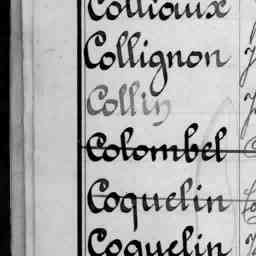 Collignon
Collin
Colombel
Coquelin
Coquelin